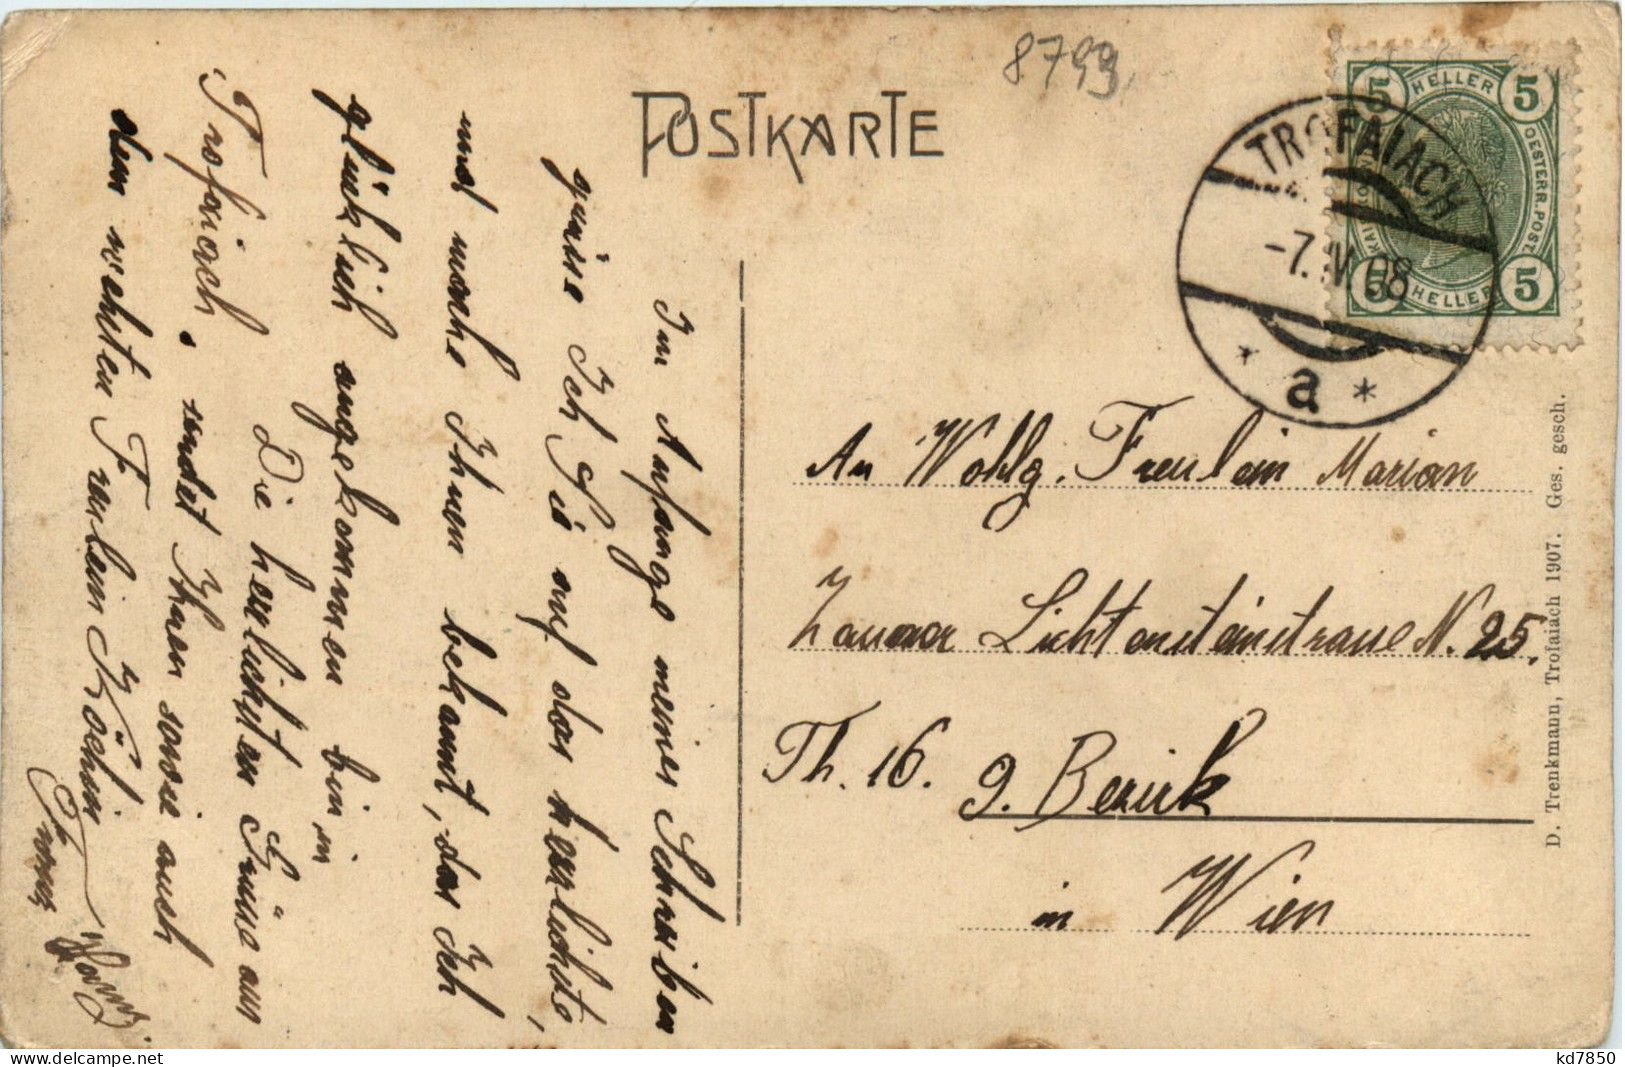 8799
POSTKARTE
5 HELLER 5
KAISERL. KÖNIGL. OESTERR. POST
5 HELLER 5
TROFAIACH
-7. IV. 08
* a *
Im Anfange meines Schreiben
grüsse Ich Sie auf das herrlichste,
und mache Ihnen bekannt, das Ich
glücklich angekommen bin, in
Trofaiach.
Die herlichsten Grüsse aus
sendet Ihnen sowie auch
dem nehsten Freulein Köchin
Franz
An Wohlg. Freulein Marian
Zauner Lichtensteinstrasse N. 25.
Th. 16. 9. Bezirk
in Wien
D. Trenkmann, Trofaiach 1907. Ges. gesch.
kd7850